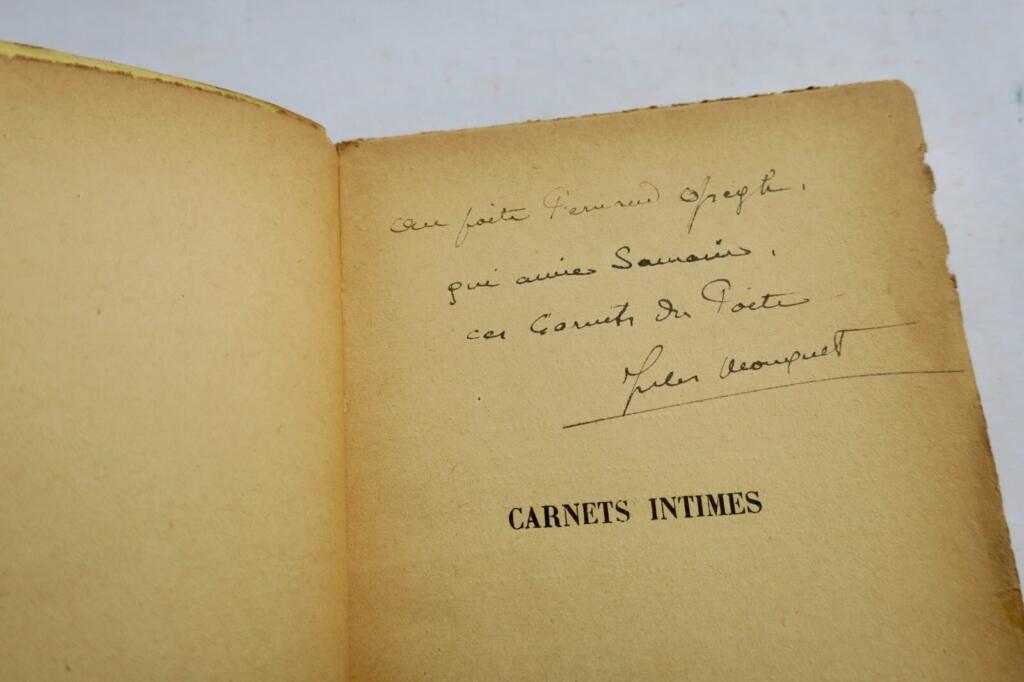 Au poète Fernand Gregh,
qui aime Samain,
ces Carnets du Poète
Jules Mouquet
CARNETS INTIMES